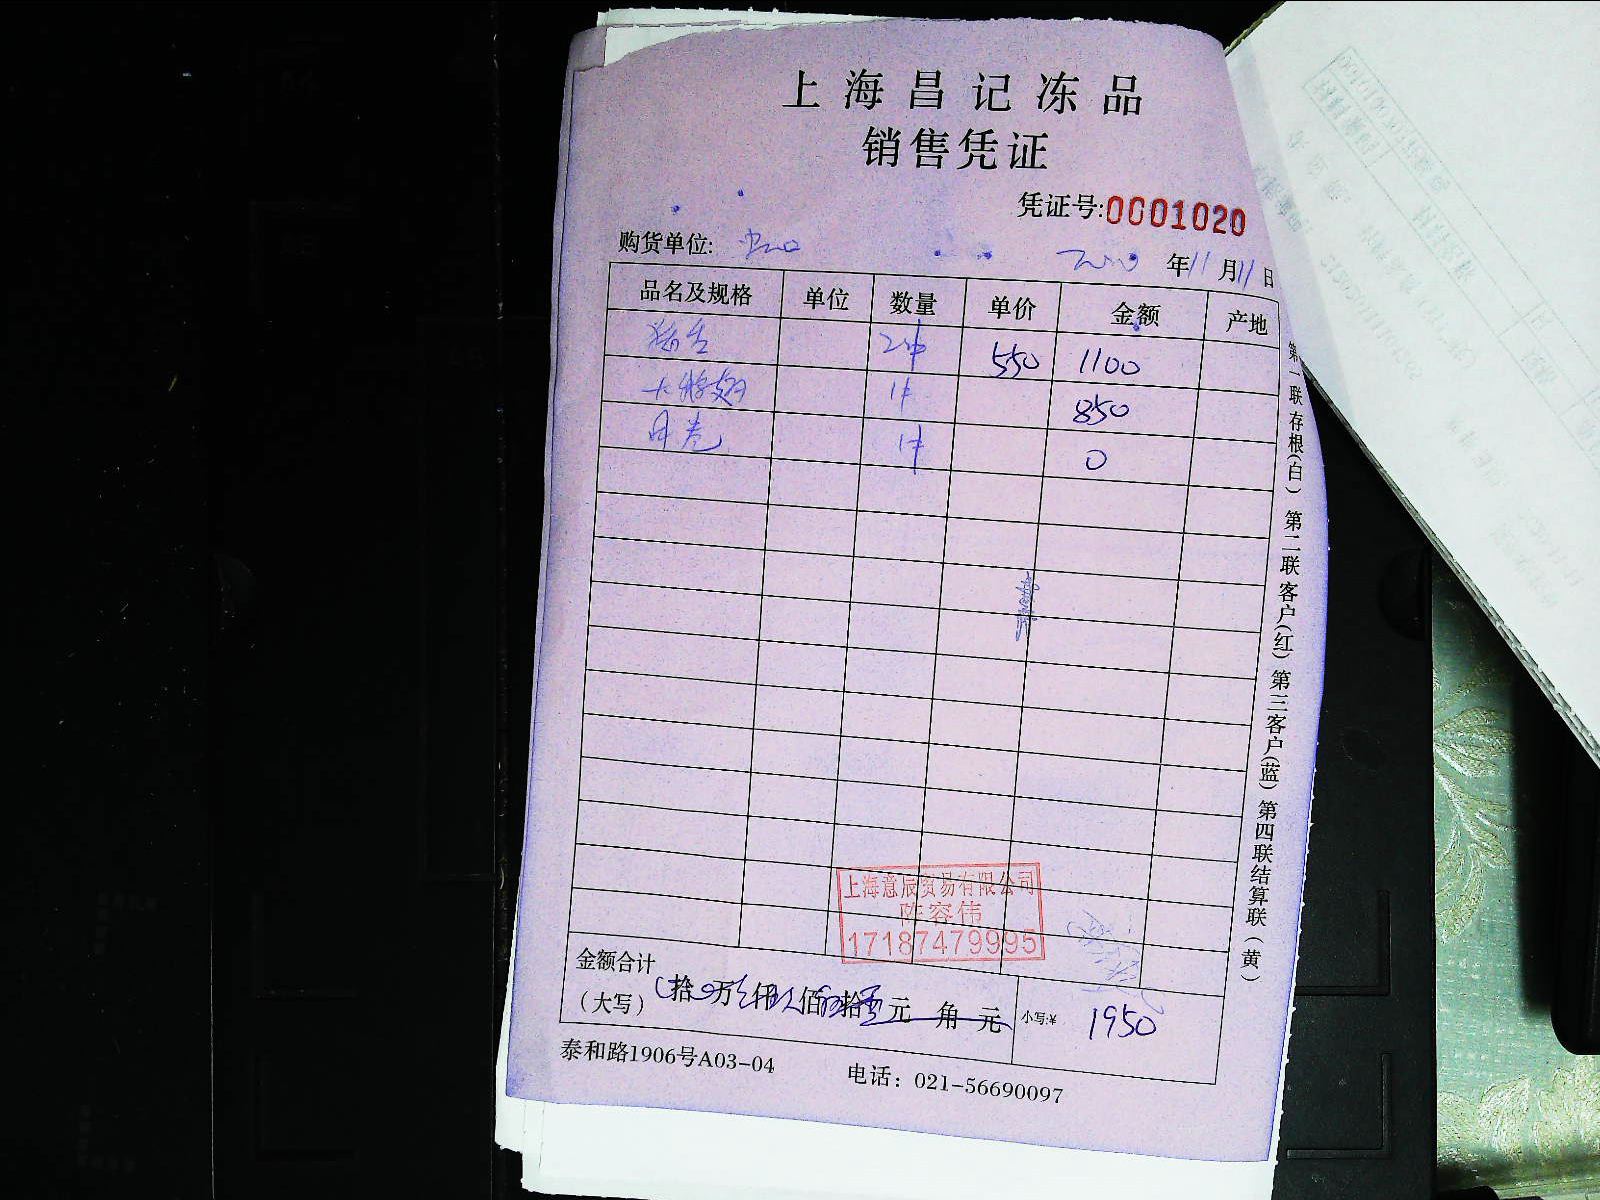 上海昌记冻品
销售凭证
凭证号:0001020
购货单位:
年11月11日
品名及规格 单位 数量 单价 金额 产地
2件 550 1100
大鸡翅 1件 850
月亮 1件 0
第一联存根(白) 第二联客户(红) 第三客户(蓝) 第四联结算联(黄)
上海意辰贸易有限公司
陈容伟
17187479995
金额合计
(大写) 拾 万 仟 佰 拾 元 角 元 小写:¥ 1950
泰和路1906号A03-04 电话：021-56690097